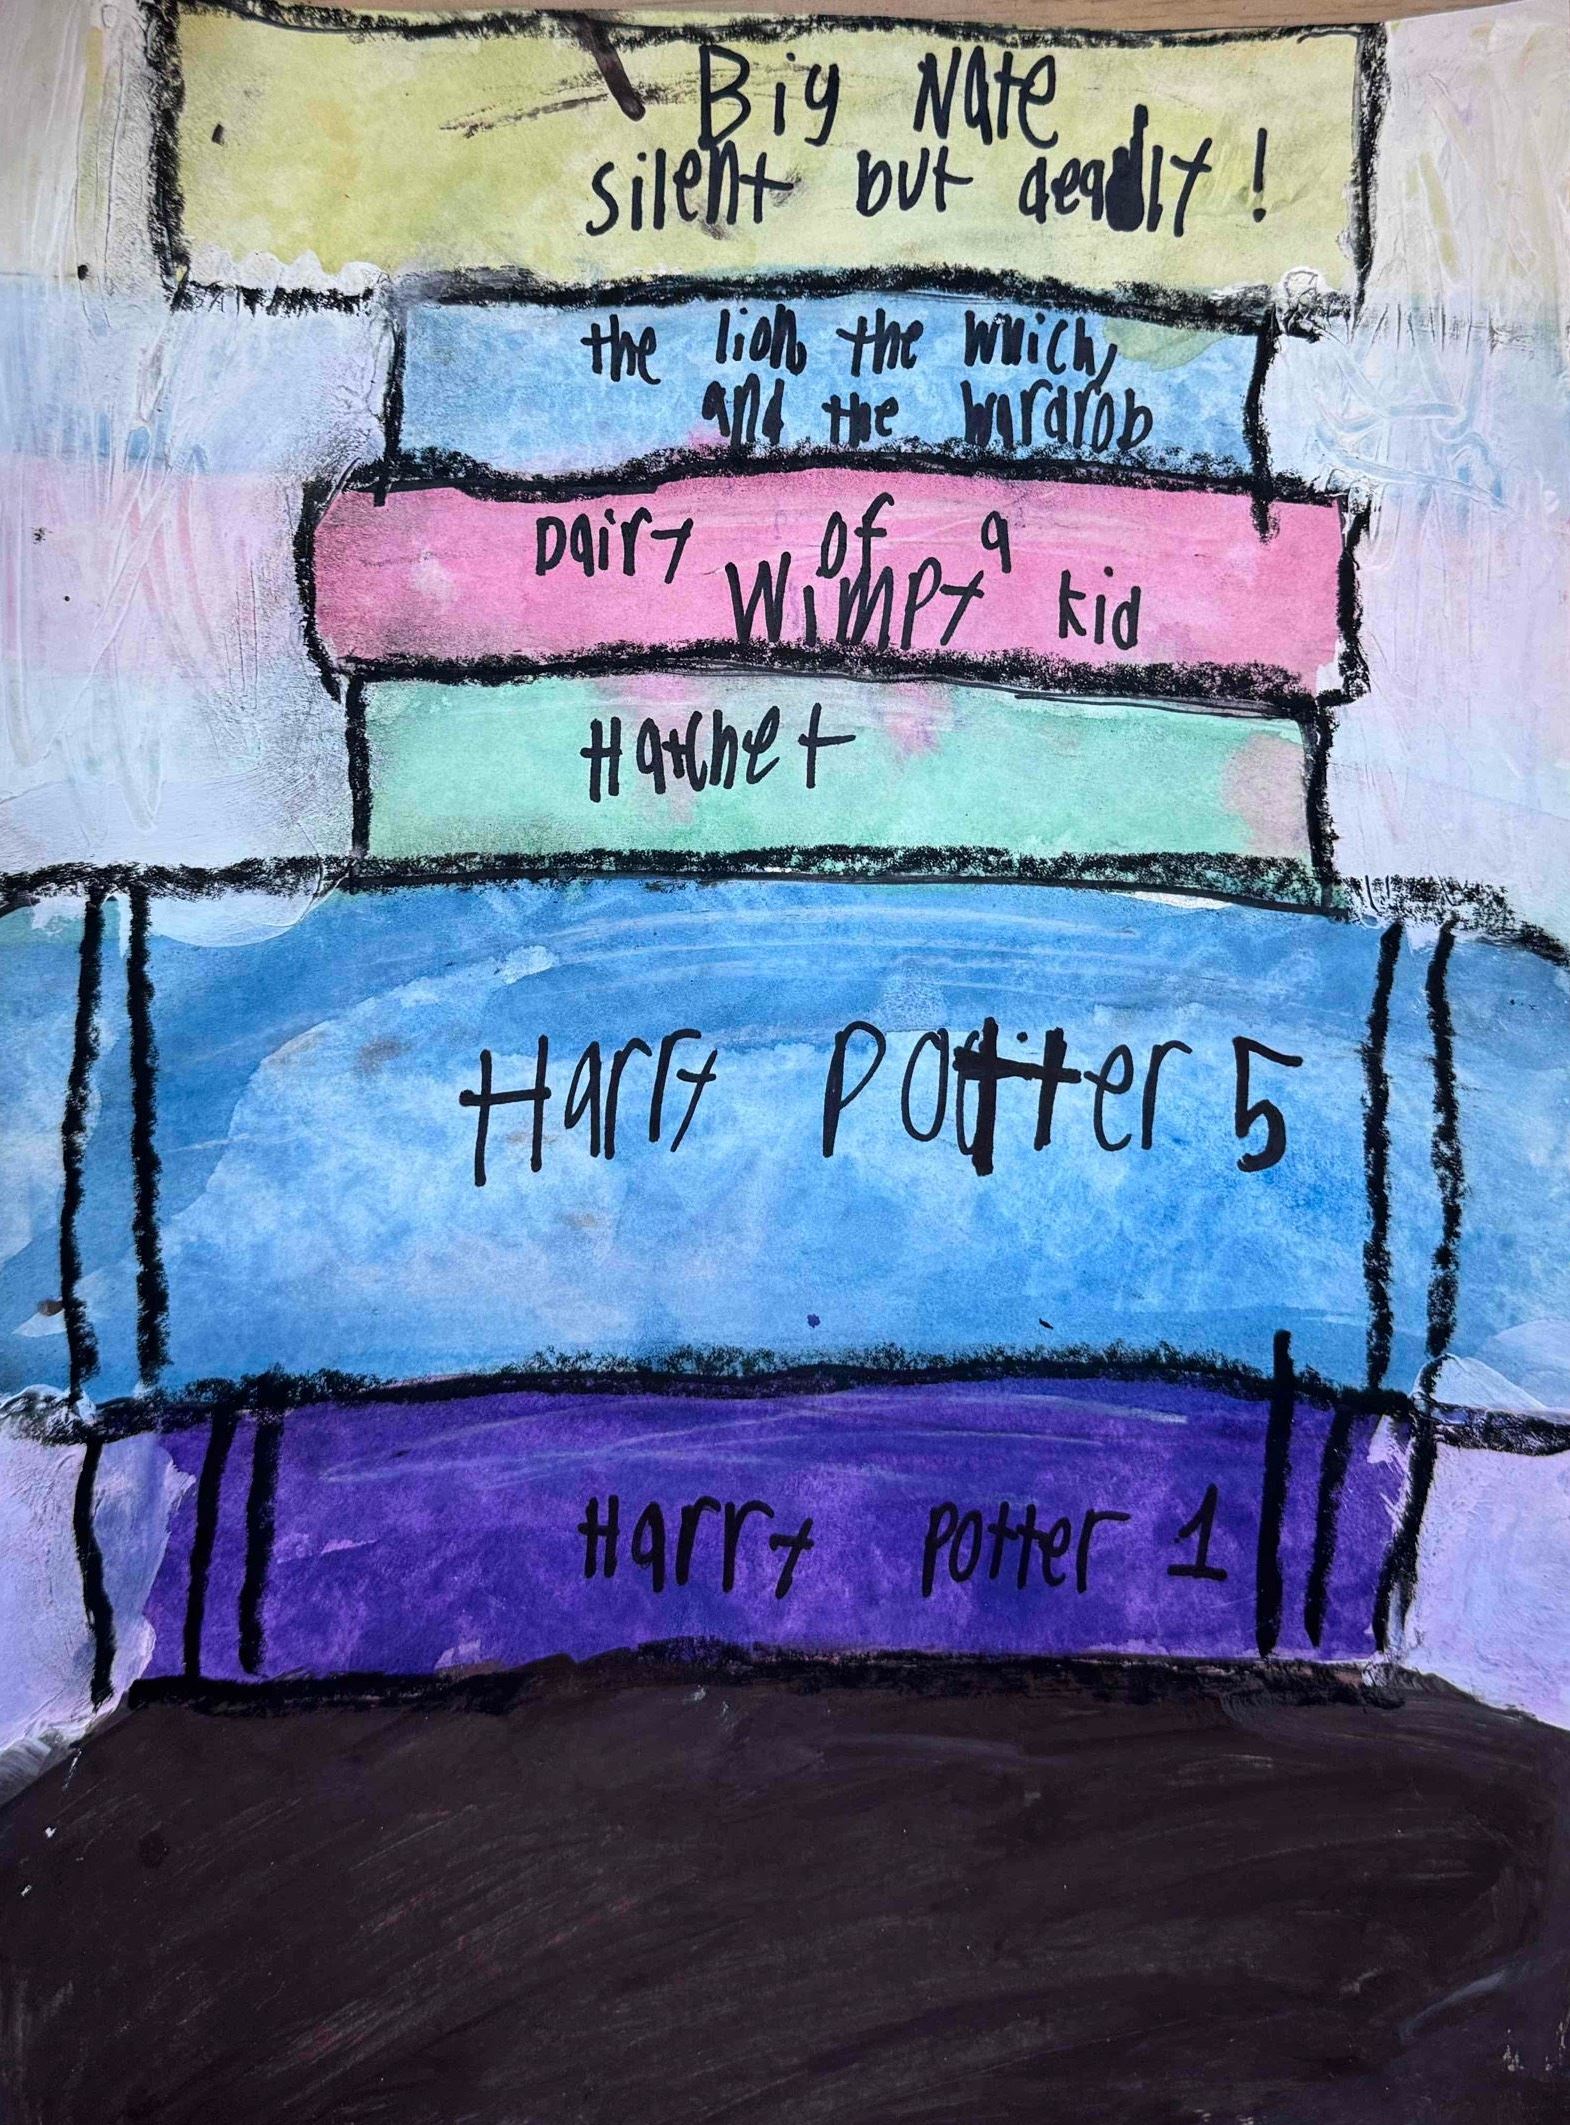 Big Nate
silent but deadly!
the lion the which,
and the wardrob
Dairy of a
Wimpy kid
Hatchet
Harry Potter 5
Harry Potter 1